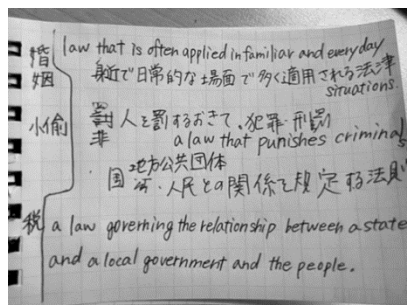 婚姻
law that is often applied in familiar and everyday
身近で日常的な場面で多く適用される法律
situations.
小偷
人を罰するおきて、犯罪・刑罰
a law that punishes criminals
地方公共団体
国 ・人民との関係を規定する法
税
a law governing the relationship between a state
and a local government and the people.